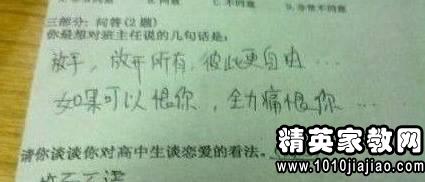 三部分: 问答(2题)
你最想对班主任说的几句话是:
放手, 放开所有, 彼此更自由…
如果可以恨你, 全力痛恨你…
请你谈谈你对高中生谈恋爱的看法。
精英家教网
www.1010jiajiao.com